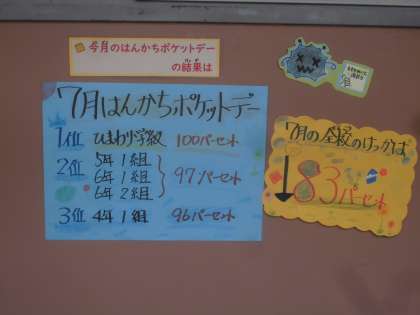 今月のはんかちポケットデー
の結果は
7月はんかちポケットデー
1位 ひまわり学級 100パーセント
2位 5年1組
6年1組 97パーセント
6年2組
3位 4年1組 96パーセント
7月の全校のけっかは
83パーセント